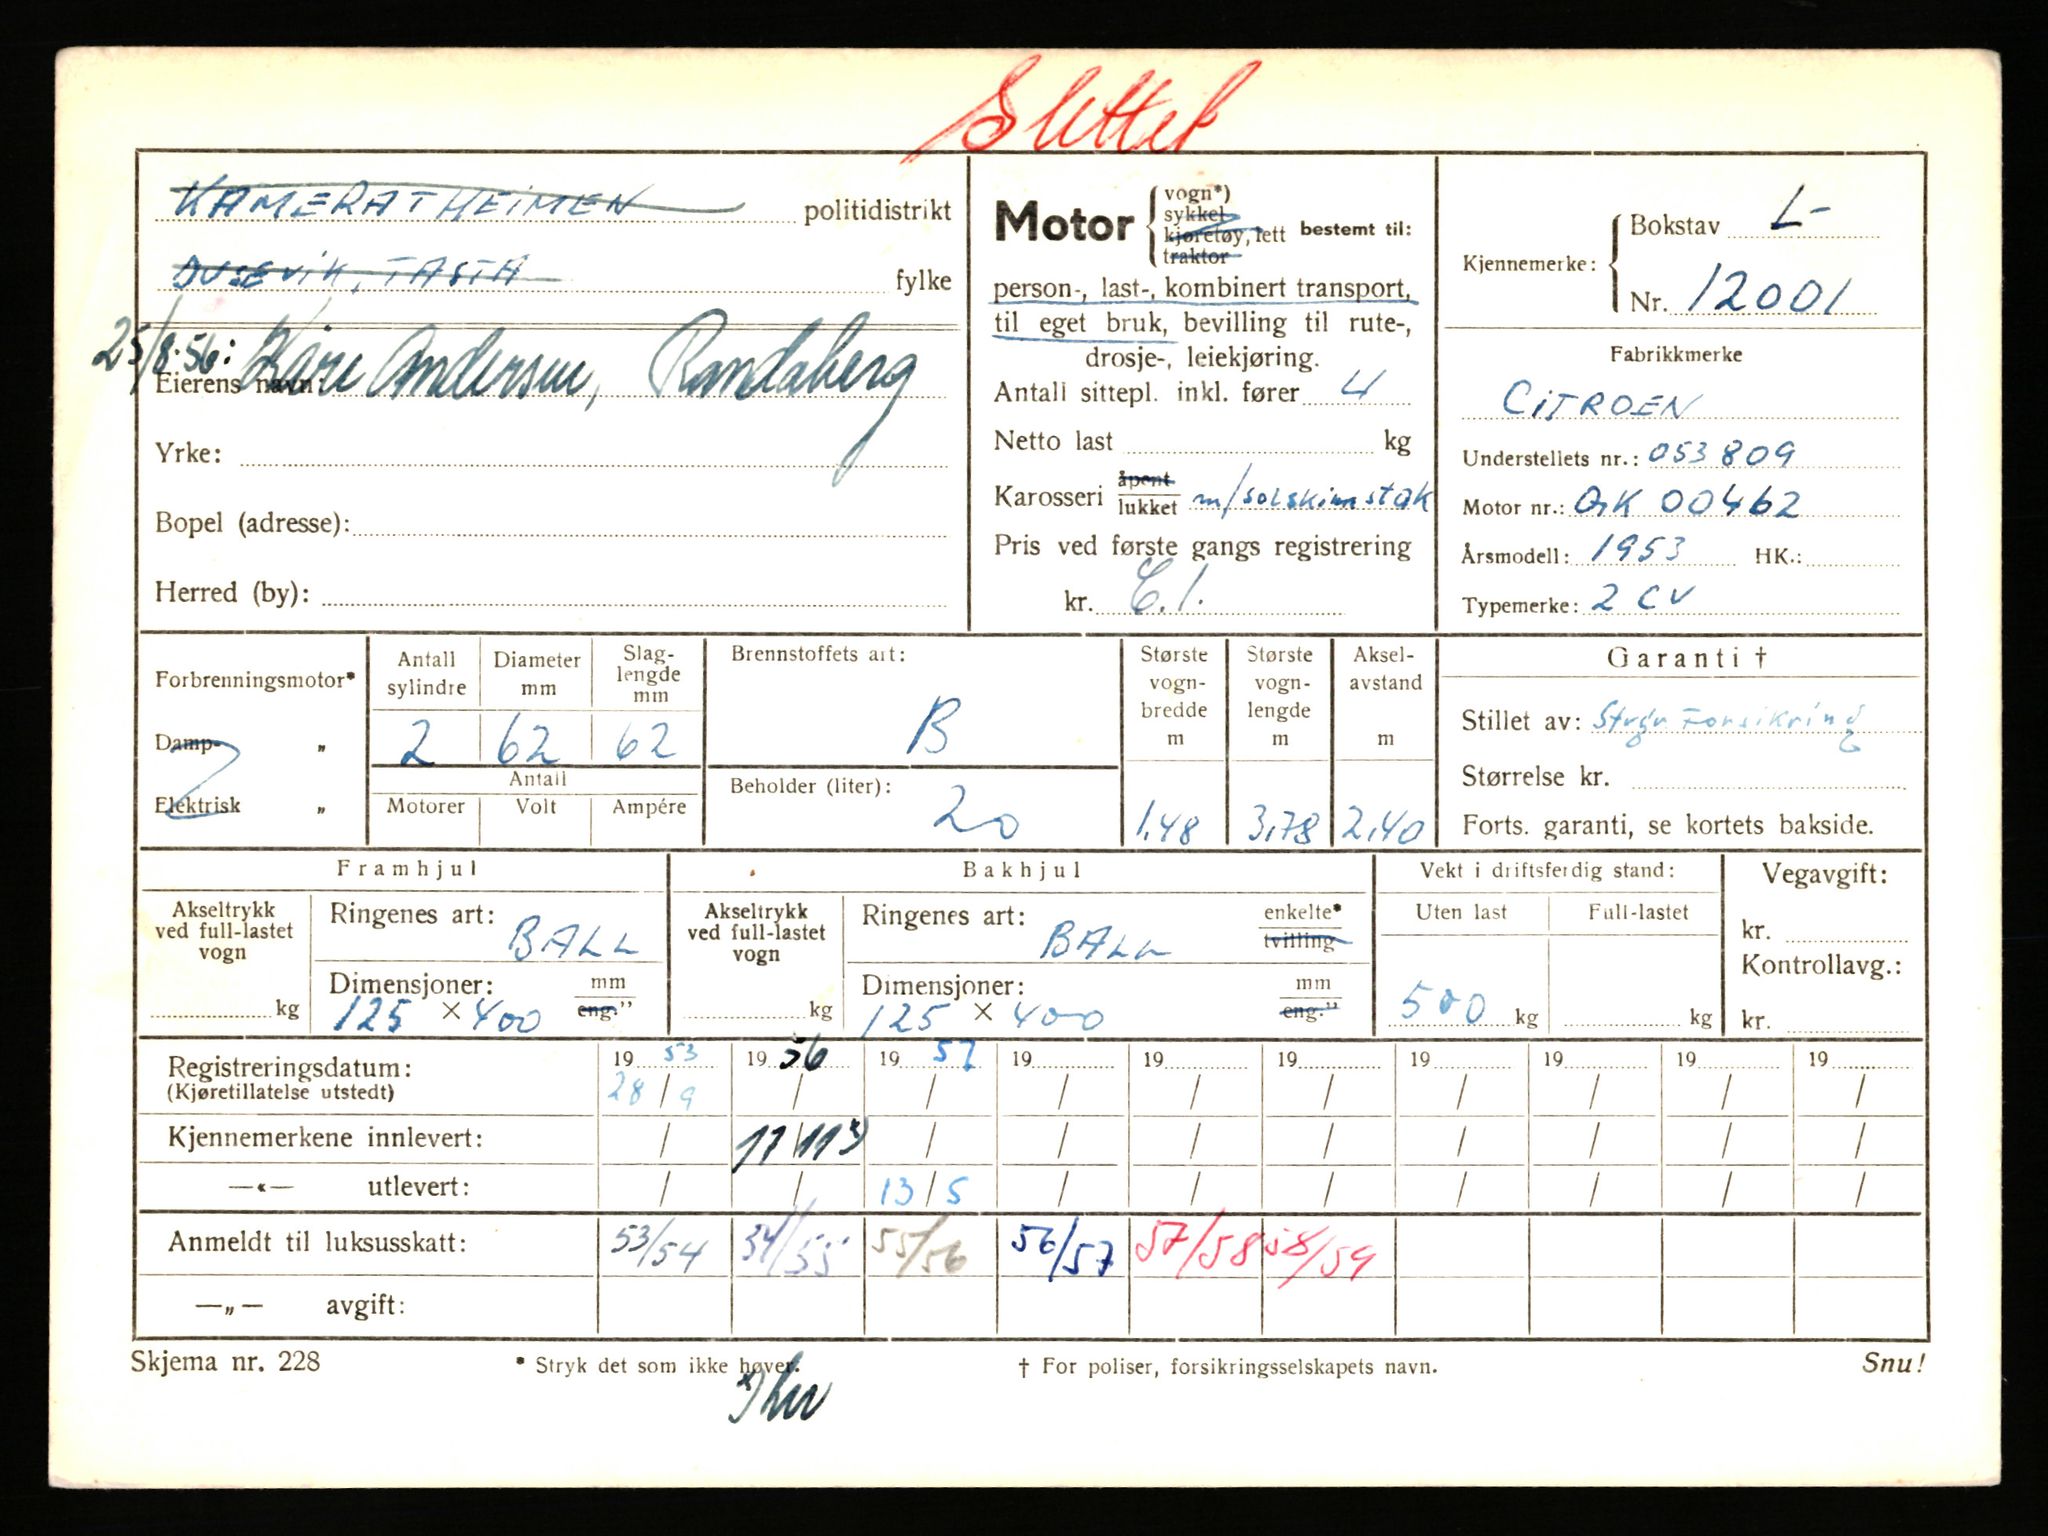 Slettet
KAMERATHEIMEN politidistrikt
DUSEVIK, TASTA fylke
25/8-56: Kåre Andersen, Randaberg
Eierens navn:
Yrke:
Bopel (adresse):
Herred (by):
Motor { vogn*)
sykkel
kjøretøy, lett
traktor
bestemt til:
person-, last-, kombinert transport,
til eget bruk, bevilling til rute-,
drosje-, leiekjøring.
Antall sittepl. inkl. fører 4
Netto last kg
Karosseri åpent
lukket m/solskinnstak
Pris ved første gangs registrering
kr. C.1.
Kjennemerke: { Bokstav L-
Nr. 12001
Fabrikkmerke
CITROEN
Understellets nr.: 053809
Motor nr.: 00462
Årsmodell: 1953 HK.:
Typemerke: 2 CV
Forbrenningsmotor*
Damp- „
Elektrisk „
Antall
sylindre
2
Diameter
mm
62
Slag-
lengde
mm
62
Antall
Motorer Volt Ampére
Brennstoffets art:
B
Beholder (liter):
20
Største
vogn-
bredde
m
1,48
Største
vogn-
lengde
m
3,78
Aksel-
avstand
m
2,40
Garanti †
Stillet av: Forsikring
Størrelse kr.
Forts. garanti, se kortets bakside.
Framhjul
Akseltrykk
ved full-lastet
vogn
kg
Ringenes art:
BALL
Dimensjoner: mm
eng."
125 × 400
Bakhjul
Akseltrykk
ved full-lastet
vogn
kg
Ringenes art: enkelte*
tvilling
BALL
Dimensjoner: mm
eng."
125 × 400
Vekt i driftsferdig stand:
Uten last Full-lastet
500 kg kg
Vegavgift:
kr.
Kontrollavg.:
kr.
Registreringsdatum: 19 53 19 56 19 57 19 19 19 19 19 19 19
(Kjøretillatelse utstedt) 28 / 9 / / / / / / / / /
Kjennemerkene innlevert: / 17/11 x) / / / / / / / /
—«— utlevert: / / 13 / 5 / / / / / / /
Anmeldt til luksusskatt: 53/54 54/55 55/56 56/57 57/58 58/59
—„— avgift:
Skjema nr. 228 * Stryk det som ikke høver. † For poliser, forsikringsselskapets navn. Snu!